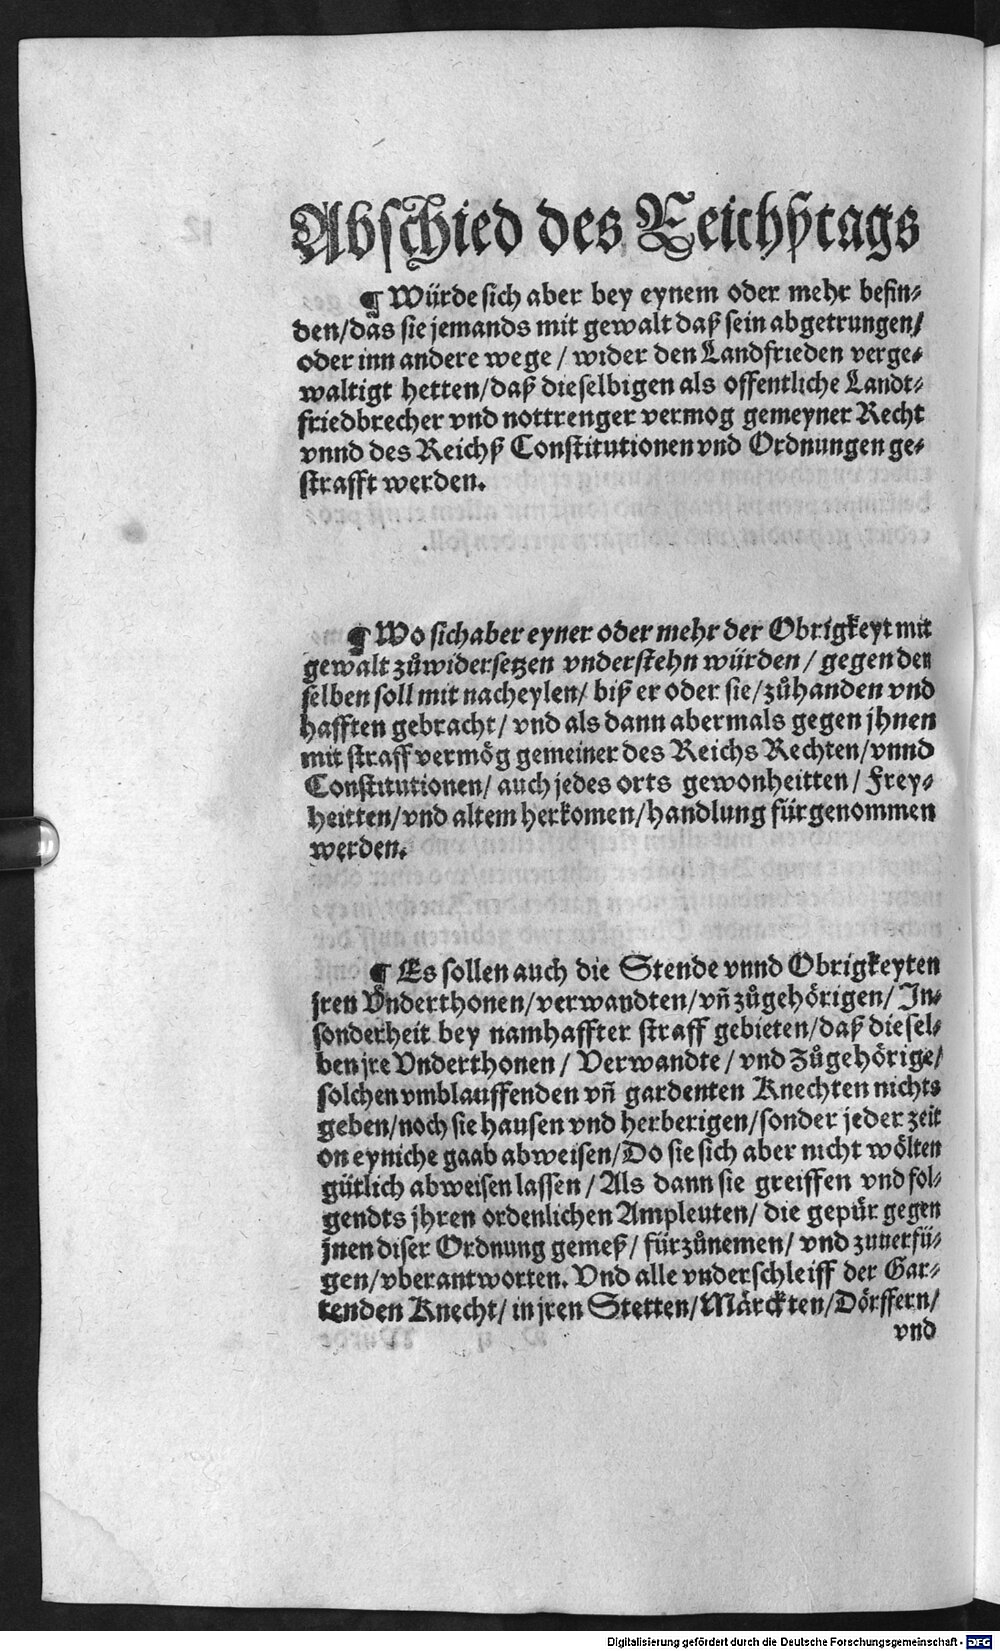 Abschied des Reichßtags
¶ Würde sich aber bey eynem oder mehr befin⸗
den/das sie jemands mit gewalt daß sein abgetrungen/
oder inn andere wege / wider den Landfrieden verge⸗
waltigt hetten/daß dieselbigen als offentliche Landt⸗
friedbrecher vnd nottrenger vermog gemeyner Recht
vnnd des Reichß Constitutionen vnd Ordnungen ge⸗
strafft werden.
¶ Wo sich aber eyner oder mehr der Obrigkeyt mit
gewalt zůwidersetzen vnderstehn würden / gegen den
selben soll mit nacheylen/ biß er oder sie/zůhanden vnd
hafften gebracht/ vnd als dann abermals gegen jhnen
mit straff vermög gemeiner des Reichs Rechten/vnnd
Constitutionen/ auch jedes orts gewonheitten/ Frey⸗
heitten/vnd altem herkomen/handlung fürgenommen
werden.
¶ Es sollen auch die Stende vnnd Obrigkeyten
jren Vnderthonen/verwandten/vñ zůgehörigen/ In⸗
sonderheit bey namhaffter straff gebieten/daß diesel⸗
ben jre Vnderthonen / Verwandte / vnd Zůgehörige/
solchen vmblauffenden vñ gardenten Knechten nichts
geben/noch sie hausen vnd herberigen/sonder jeder zeit
on eyniche gaab abweisen/Do sie sich aber nicht wölten
gütlich abweisen lassen / Als dann sie greiffen vnd fol⸗
gendts jhren ordenlichen Ampleuten/ die gepür gegen
jnen diser Ordnung gemeß/ fürzůnemen/ vnd zuuerfü⸗
gen/vberantworten. Vnd alle vnderschleiff der Gar⸗
tenden Knecht/ in jren Stetten/Märckten/Dörffern/
vnd
Digitalisierung gefördert durch die Deutsche Forschungsgemeinschaft - DFG